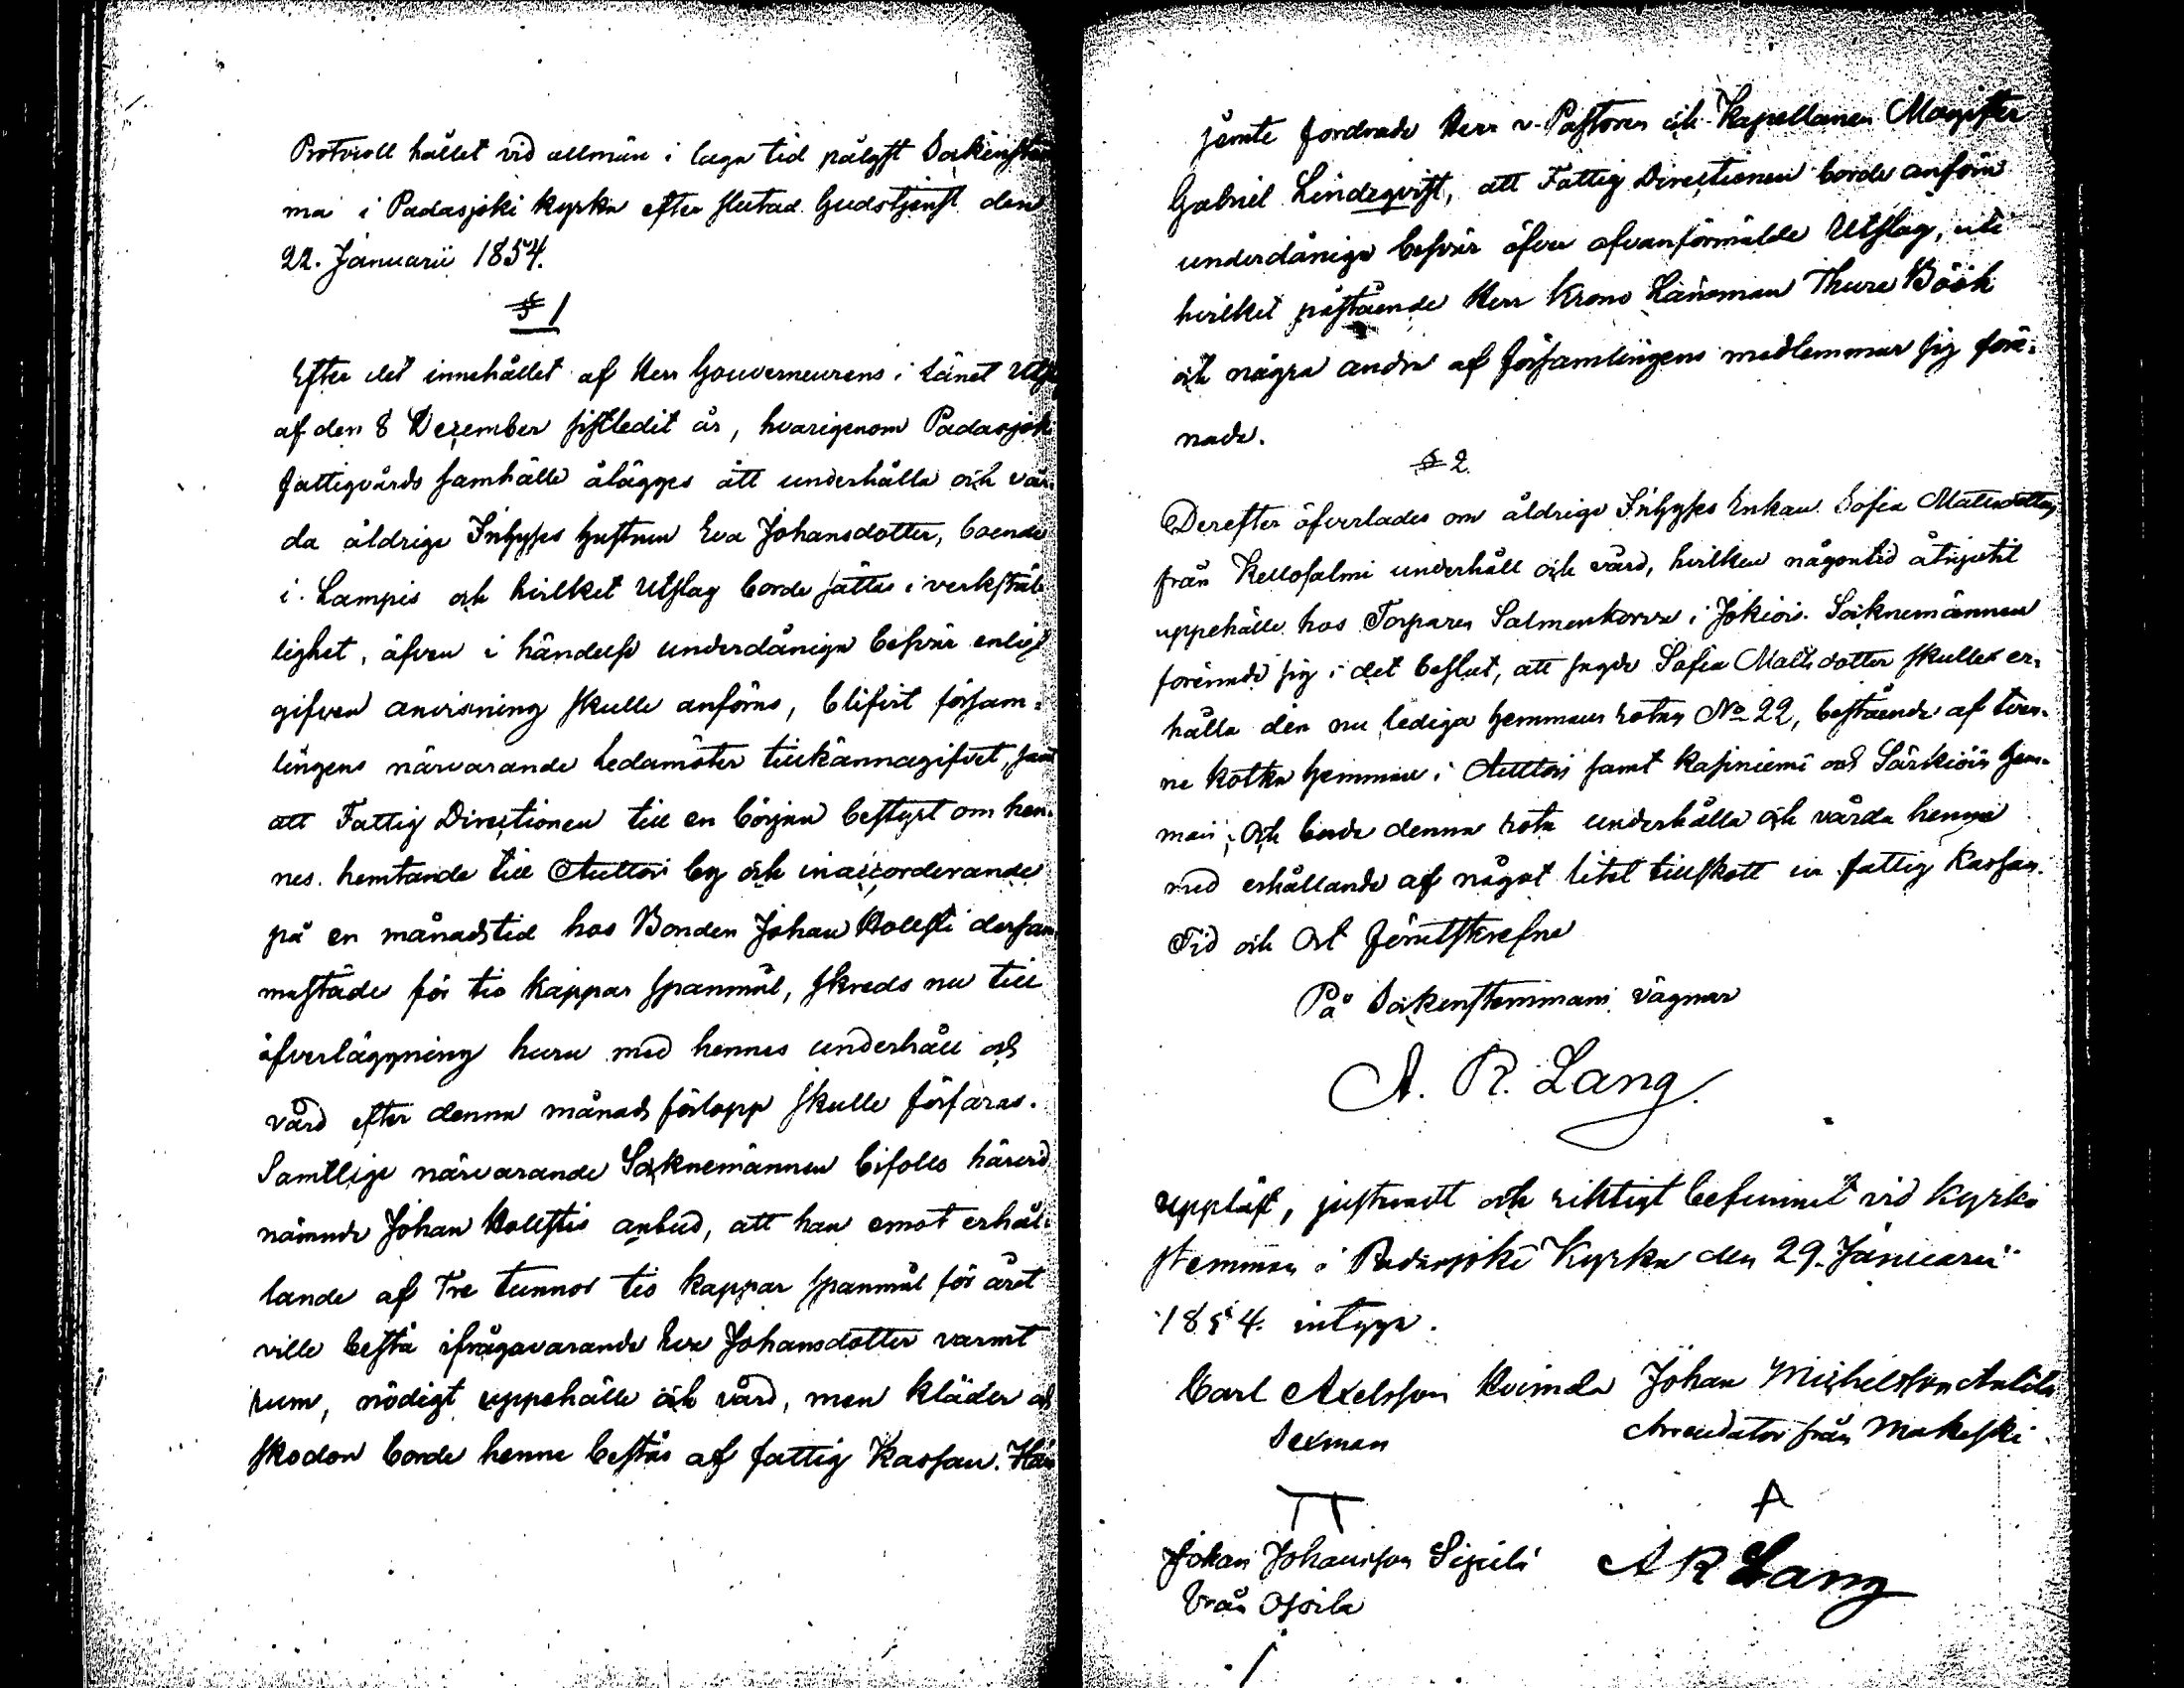 Protocoll hållet vid allmän i laga tid pålyst Sockenstäm
ma i Padasjoki kyrka efter slutad Gudstjenst den
22. Januarii 1854.
§ 1
Efter det innehållet af Herr Gouverneurens i Länet Utsl
af den 8 December sistledit år, hvarigenom Padasjoki
fattigvårds samhälle ålägges att underhålla och vår¬
da åldrige Inhyses hustrun Eva Johansdotter, boende
i Lampis och hvilket Utslag borde sättas i verkstäl
lighet, äfven i händelse underdåniga besvär enligt
gifven anvisning skulle anföras, blifvit försam¬
lingens närvarande ledamöter tillkännagifvet, samt
att Fattig Directionen till en början bestyrt om hen¬
nes hemtande till Auttois by och inaccorderande
på en månads tid hos Bonden Johan Hollsti dersam
mastäde för tio kappar spanmål, skreds nu till
öfverläggning huru med hennes underhåll och
vård efter denna månads förlopp skulle förfaras.
Samtlige närvarande Socknemännen biföllo härvid
nämnde Johan Hollstis anbud, att han emot erhål¬
lande af Tre tunnor tio kappar spanmål för året
ville bestå ifrågavarande Eva Johansdotter varmt
rum, nödigt uppehälle och vård, men kläder och
skodon borde henne bestås af fattig Kassan. Här
jemte fordrade Herr v. Pastoren och Kapellanen Magister
Gabriel Lindeqvist, att Fattig Directionen borde anföra
underdåniga besvär öfver ofvanförmälde Utslag, uti
hvilket påstående Herr Krono Länsman Thure Böök
och några andra af församlingens medlemmar sig före¬
nade.
§ 2.
Derefter öfverlades om åldrige Inhyses Enkan Sofia Mattsdotters
från Kellosalmi underhåll och vård, hvilken någon tid åtnjutit
uppehälle hos Torparen Salmenkorva i Jokiois. Socknemännen
förenade sig i det beslut, att sagde Sofia Mattsdotter skulle er¬
hålla den nu lediga hemmans rotan No 22, bestående af tven¬
ne Kotka hemman i Auttois samt Kasiniemi och Särkiöis hem¬
man; Och borde denna rota underhålla och vårda henne
med erhållande af något litet tillskott ur fattig Kassan.
Tid och Ort förutskrefne
På Sockenstemmans vägnar
A. R. Lang.
Uppläst, justeradt och riktigt befunnet vid Kyrko
stemman i Padasjoki Kyrka den 29. Januarii
1854. intyga.
Carl Axelsson Johan Michelsson Anttila
Sexman Arrendator från Makeski
Johan Johansson Sipilä A R Lang
från Osoila